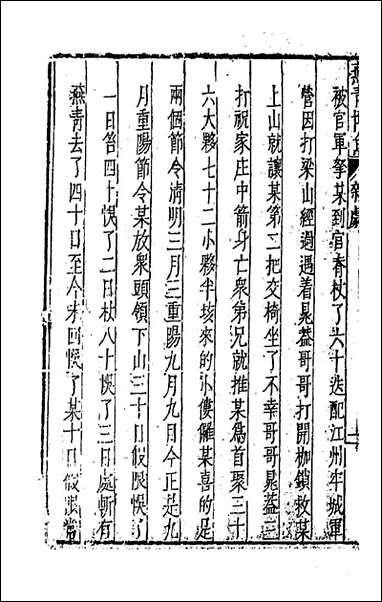 燕青博魚 雜劇
被官軍拏某到官脊杖了六十迭配江州牢城軍
營因打梁山經過遇着晁葢哥哥打開枷鎖救某
上山就讓某第二把交椅坐了不幸哥哥晁葢三
打祝家庄中箭身亡衆弟兄就推某爲首聚三十
六大夥七十二小夥半垓來的小僂儸某喜的是
兩個節令清明三月三重陽九月九今正是九
月重陽節令某放衆頭領下山三十日假限悞了
一日笞四十悞了二日杖八十悞了三日處斬有
燕青去了四十日至今未回悞了某十日假限常